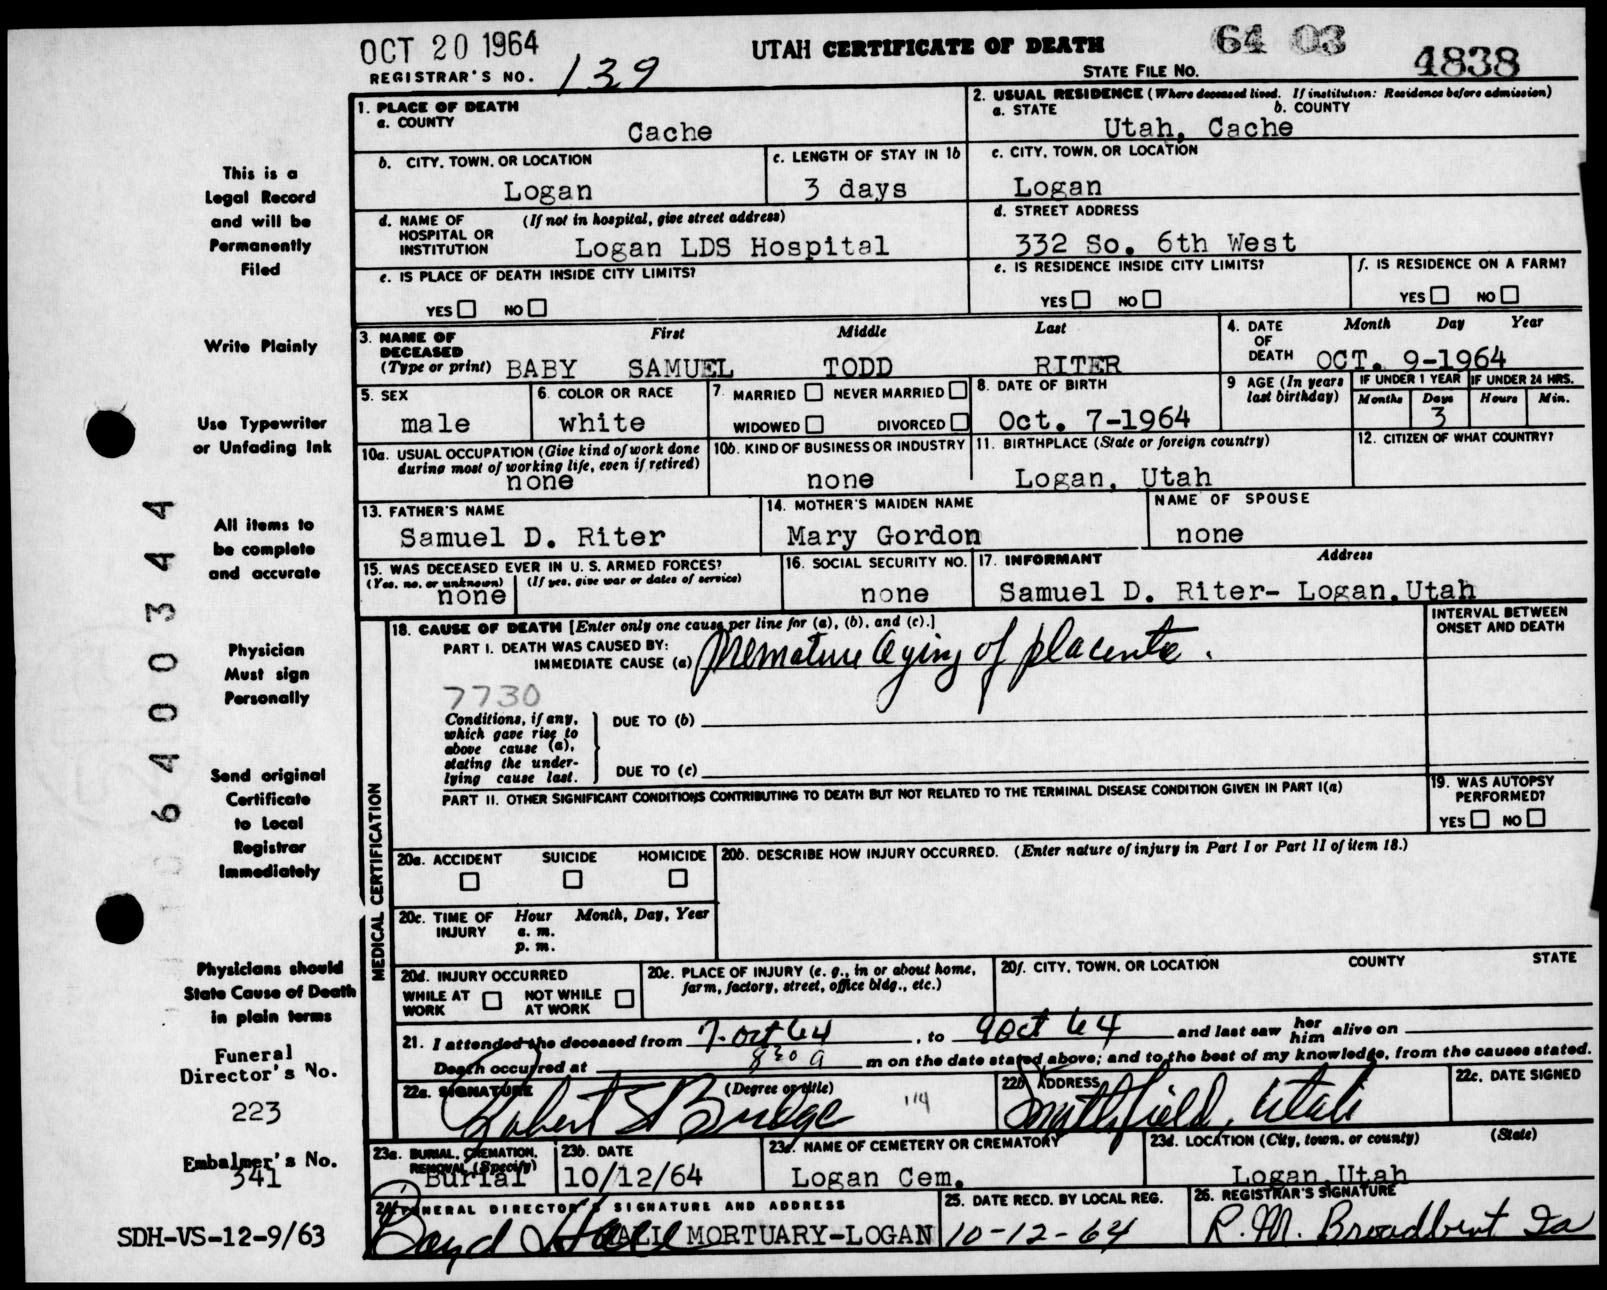 OCT 20 1964
UTAH CERTIFICATE OF DEATH
64 03
REGISTRAR'S NO. 139
STATE FILE NO. 4838
This is a
Legal Record
and will be
Permanently
Filed
Write Plainly
Use Typewriter
or Unfading Ink
All items to
be complete
and accurate
Physician
Must sign
Personally
Send original
Certificate
to Local
Registrar
Immediately
Physicians should
State Cause of Death
in plain terms
Funeral
Director's No.
223
Embalmer's No.
341
SDH-VS-12-9/63
6400344
1. PLACE OF DEATH
a. COUNTY
Cache
2. USUAL RESIDENCE (Where deceased lived. If institution: Residence before admission)
a. STATE b. COUNTY
Utah, Cache
b. CITY, TOWN, OR LOCATION
Logan
c. LENGTH OF STAY IN 1b
3 days
c. CITY, TOWN, OR LOCATION
Logan
d. NAME OF HOSPITAL OR INSTITUTION (If not in hospital, give street address)
Logan LDS Hospital
d. STREET ADDRESS
332 So. 6th West
e. IS PLACE OF DEATH INSIDE CITY LIMITS?
YES NO
e. IS RESIDENCE INSIDE CITY LIMITS?
YES NO
f. IS RESIDENCE ON A FARM?
YES NO
3. NAME OF DECEASED (Type or print)
First Middle Last
BABY SAMUEL TODD RITER
4. DATE OF DEATH
Month Day Year
OCT. 9-1964
5. SEX
male
6. COLOR OR RACE
white
7. MARRIED NEVER MARRIED
WIDOWED DIVORCED
8. DATE OF BIRTH
Oct. 7-1964
9 AGE (In years last birthday)
IF UNDER 1 YEAR IF UNDER 24 HRS.
Months Days Hours Min.
3
10a. USUAL OCCUPATION (Give kind of work done during most of working life, even if retired)
none
10b. KIND OF BUSINESS OR INDUSTRY
none
11. BIRTHPLACE (State or foreign country)
Logan, Utah
12. CITIZEN OF WHAT COUNTRY?
13. FATHER'S NAME
Samuel D. Riter
14. MOTHER'S MAIDEN NAME
Mary Gordon
NAME OF SPOUSE
none
15. WAS DECEASED EVER IN U. S. ARMED FORCES?
(Yes, no, or unknown) (If yes, give war or dates of service)
none
16. SOCIAL SECURITY NO.
none
17. INFORMANT Address
Samuel D. Riter- Logan, Utah
MEDICAL CERTIFICATION
18. CAUSE OF DEATH [Enter only one cause per line for (a), (b), and (c).]
INTERVAL BETWEEN
ONSET AND DEATH
PART I. DEATH WAS CAUSED BY:
IMMEDIATE CAUSE (a) Premature Aging of placenta.
7730
Conditions, if any,
which gave rise to
above cause (a),
stating the under-
lying cause last.
DUE TO (b)
DUE TO (c)
PART II. OTHER SIGNIFICANT CONDITIONS CONTRIBUTING TO DEATH BUT NOT RELATED TO THE TERMINAL DISEASE CONDITION GIVEN IN PART I(a)
19. WAS AUTOPSY
PERFORMED?
YES NO
20a. ACCIDENT SUICIDE HOMICIDE
20b. DESCRIBE HOW INJURY OCCURRED. (Enter nature of injury in Part I or Part II of item 18.)
20c. TIME OF INJURY Hour Month, Day, Year
a. m.
p. m.
20d. INJURY OCCURRED
WHILE AT WORK NOT WHILE AT WORK
20e. PLACE OF INJURY (e. g., in or about home, farm, factory, street, office bldg., etc.)
20f. CITY, TOWN, OR LOCATION COUNTY STATE
21. I attended the deceased from 7-Oct 64, to 9 Oct 64 and last saw her him alive on
Death occurred at 830 a m on the date stated above; and to the best of my knowledge, from the causes stated.
22a. SIGNATURE (Degree or title)
Robert S Budge
114
22b ADDRESS
Smithfield, Utah
22c. DATE SIGNED
23a. BURIAL, CREMATION, REMOVAL (Specify)
Burial
23b. DATE
10/12/64
23c. NAME OF CEMETERY OR CREMATORY
Logan Cem.
23d. LOCATION (City, town, or county) (State)
Logan, Utah
24. FUNERAL DIRECTOR'S SIGNATURE AND ADDRESS
Boyd Hall HALL MORTUARY-LOGAN
25. DATE RECD. BY LOCAL REG.
10-12-64
26. REGISTRAR'S SIGNATURE
R. M. Broadbent